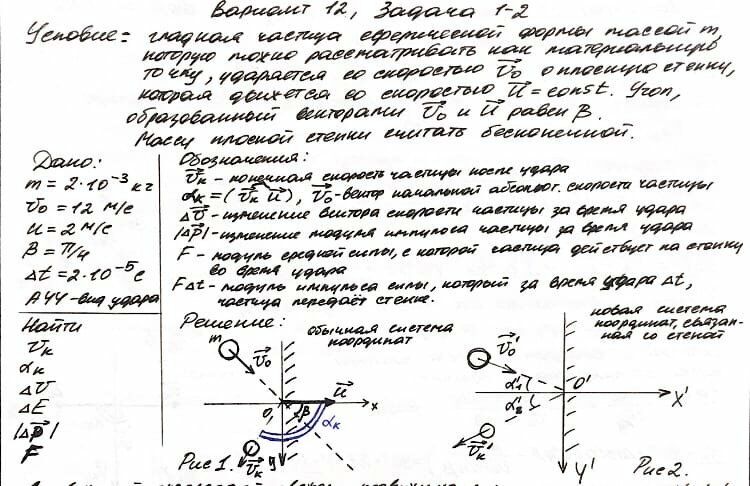 Вариант 12, Задача 1-2
Условие: гладкая частица сферической формы массой m,
которую можно рассматривать как материальную
точку, ударяется со скоростью v₀ о плоскую стенку,
которая движется со скоростью u = const. Угол,
образованный векторами v₀ и u равен β.
Массу плоской стенки считать бесконечной.
Дано:
m = 2·10⁻³ кг
v₀ = 12 м/с
u = 2 м/с
β = π/4
Δt = 2·10⁻⁵ с
АУУ - вид удара
Найти
vк
αк
Δv
ΔE
|Δp|
F
Обозначения:
vк - конечная скорость частицы после удара
αк = (vк u), v₀ - вектор начальной абсолют. скорости частицы
Δv - изменение вектора скорости частицы за время удара
|Δp| - изменение модуля импульса частицы за время удара
F - модуль средней силы, с которой частица действует на стенку
во время удара
FΔt - модуль импульса силы, который за время удара Δt,
частица передаёт стенке.
Решение:
обычная система
координат
m
v₀
u
O,
β
x
αк
vк
y
Рис 1.
новая система
координат, связан-
ная со стеной
v₀'
α₁'
O'
α₂'
X'
vк'
Y'
Рис 2.